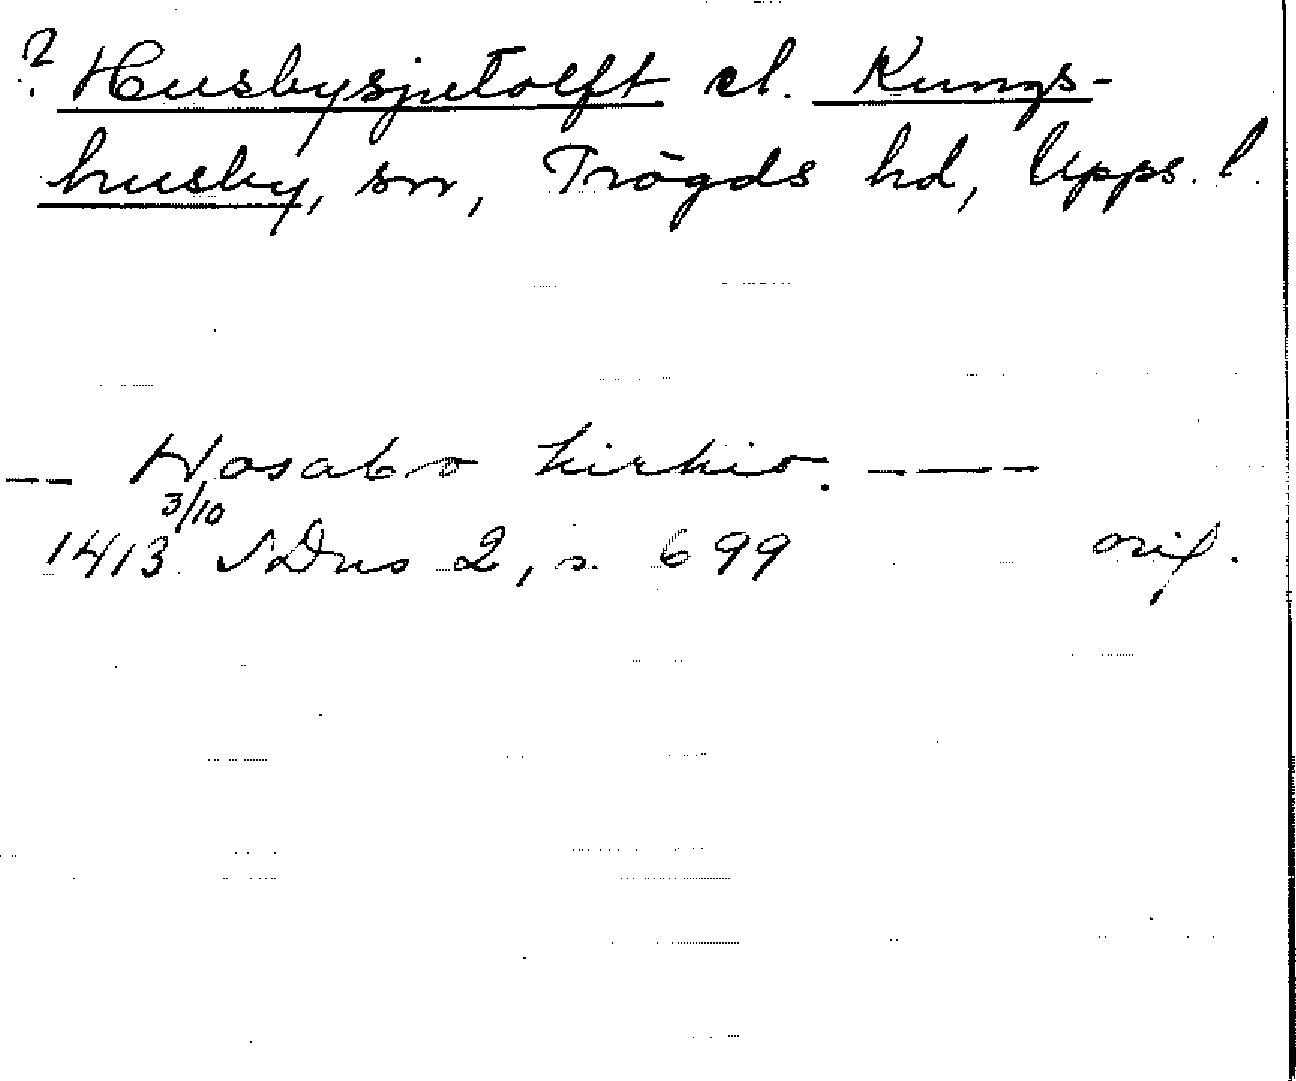 ? Husbysjutolft el. Kungs-
husby, sn, Trögds hd, Upps. l.
-- Hosabo kirkio. ---
3/10
1413 SDns 2, s. 699 orig.